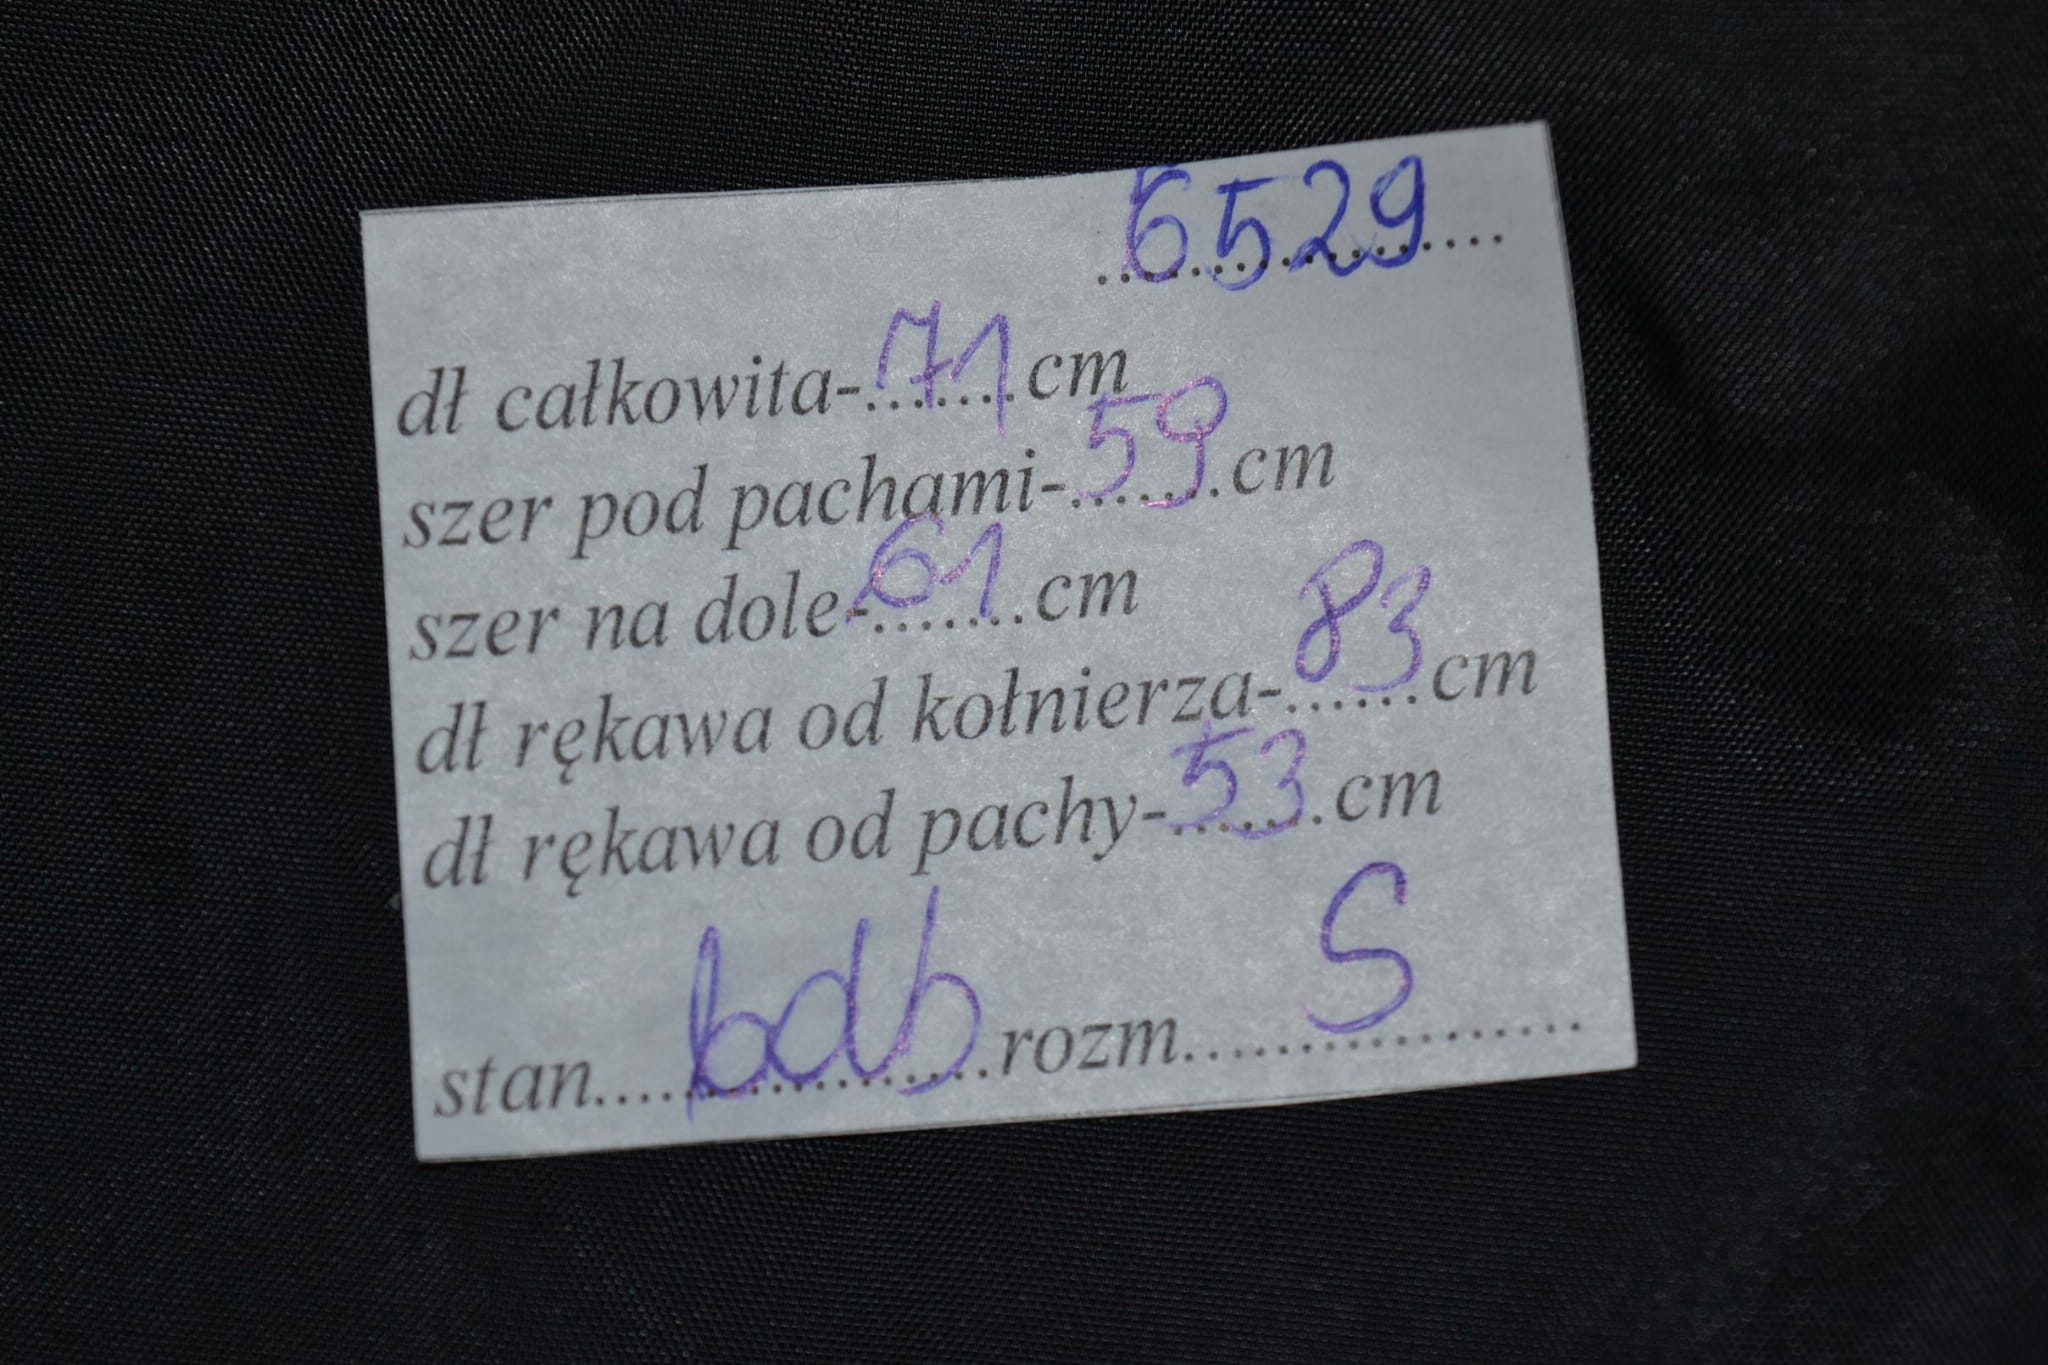 6529
dł całkowita-71cm
szer pod pachami-59cm
szer na dole-61cm
dł rękawa od kołnierza-83cm
dł rękawa od pachy-53cm
stan bdb rozm S